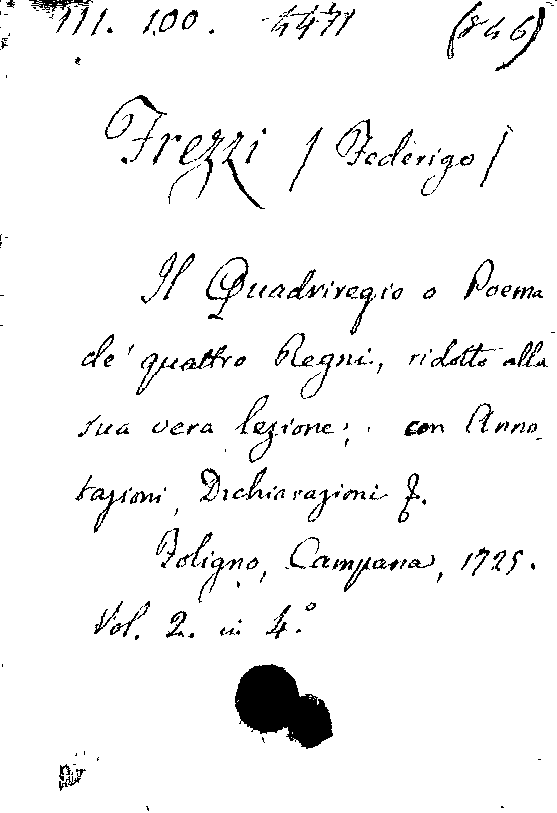 111. 100. 4471 (846)
Frezzi / Federigo /
Il Quadriregio o Poema
de' quattro Regni, ridotto alla
sua vera lezione; con Anno-
tazioni, Dichiarazioni &.
Foligno, Campana, 1725.
Vol. 2. in 4.°